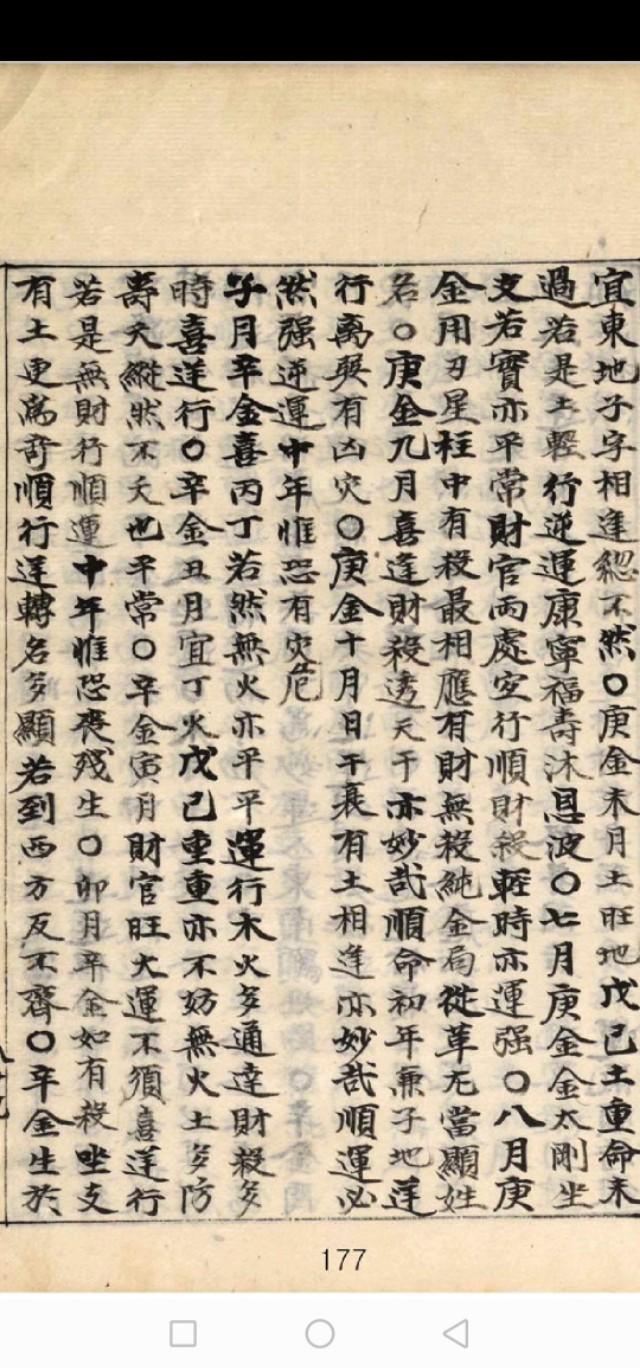 宜東地子字相逢綛不然○庚金未月土旺地戊己土重命未
過若是土輕行逆運康寧福壽沐恩波○七月庚金金太剛坐
支若實亦平常財官両處空行順財殺輕時亦運强○八月庚
金用刃星柱中有殺最相應有財無殺純金局從革元當顯姓
名○庚金九月喜逢財殺透天干亦妙哉順命初年兼子地逆
行离巽有凶灾○庚金十月日干衰有土相逢亦妙哉順運必
然强逆運中年惟恐有灾厄
子月辛金喜丙丁若然無火亦平平運行木火多通達財殺多
時喜逆行○辛金丑月宜丁火戊己重重亦不妨無火土多防
壽夭縱然不夭也平常○辛金寅月財官旺大運不須喜逆行
若是無財行順運中年惟恐喪残生○卯月辛金如有殺坐支
有土更爲奇順行逆轉名多顯若到西方反不齊○辛金生於
177